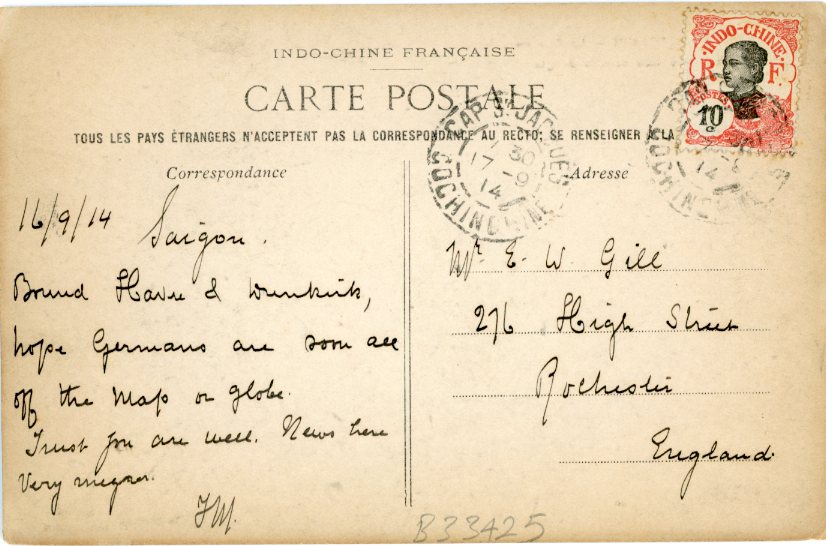 INDO-CHINE FRANÇAISE
CARTE POSTALE
TOUS LES PAYS ÉTRANGERS N'ACCEPTENT PAS LA CORRESPONDANCE AU RECTO; SE RENSEIGNER A LA
Correspondance
Adresse
INDO-CHINE
R F
POSTES
10 c
CAP ST JACQUES
1 30
17 -9
14
COCHINCHINE
14
COCHINCHINE
16/9/14 Saigon.
Bound Havre & Dunkirk,
hope Germans are soon all
off the Map or globe.
Trust you are well. News here
Very meagre.
Mr. E. W. Gill
276 High Street
Rochester
England.
B33425